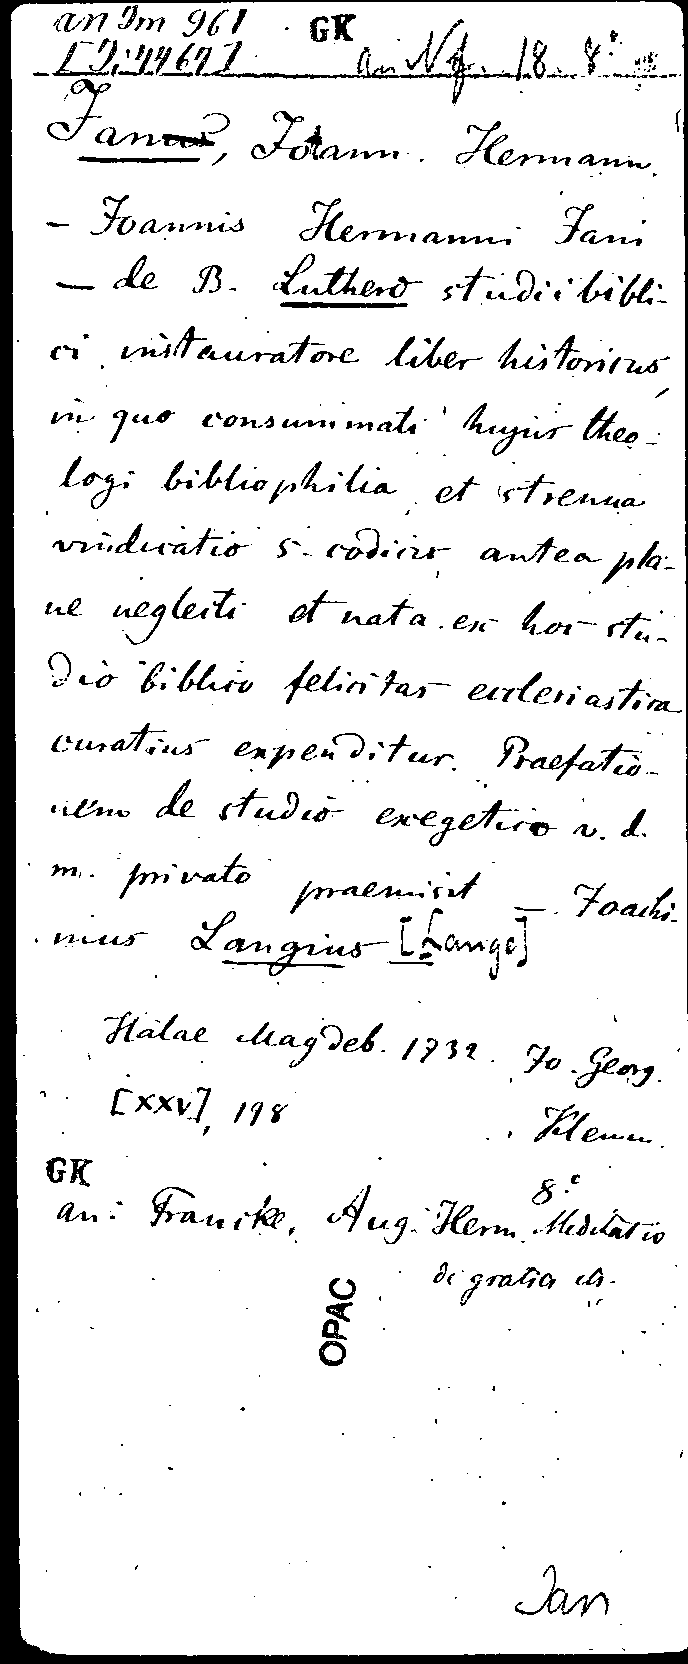 an Im 961 GK
[Di 4467] an Nf. 18. 8°
Janus, Joann. Hermann.
- Joannis Hermanni Jani
- de B. Luthero studii bibli-
ci instauratore liber historicus,
in quo consummati hujus theo-
logi bibliophilia et strenua
vindicatio s. codicis antea pla-
ne neglecti et nata ex hoc stu-
dio biblico felicitas ecclesiastica
curatius expenditur. Praefatio-
nem de studio exegetico v. d.
m. privato praemisit - Joachi-
mus Langius [Lange]
Halae Magdeb. 1732. Jo. Georg.
[XXV], 198 Klemm.
8°
GK
an: Francke, Aug. Herm. Meditatio
di gratia
OPAC
Jan